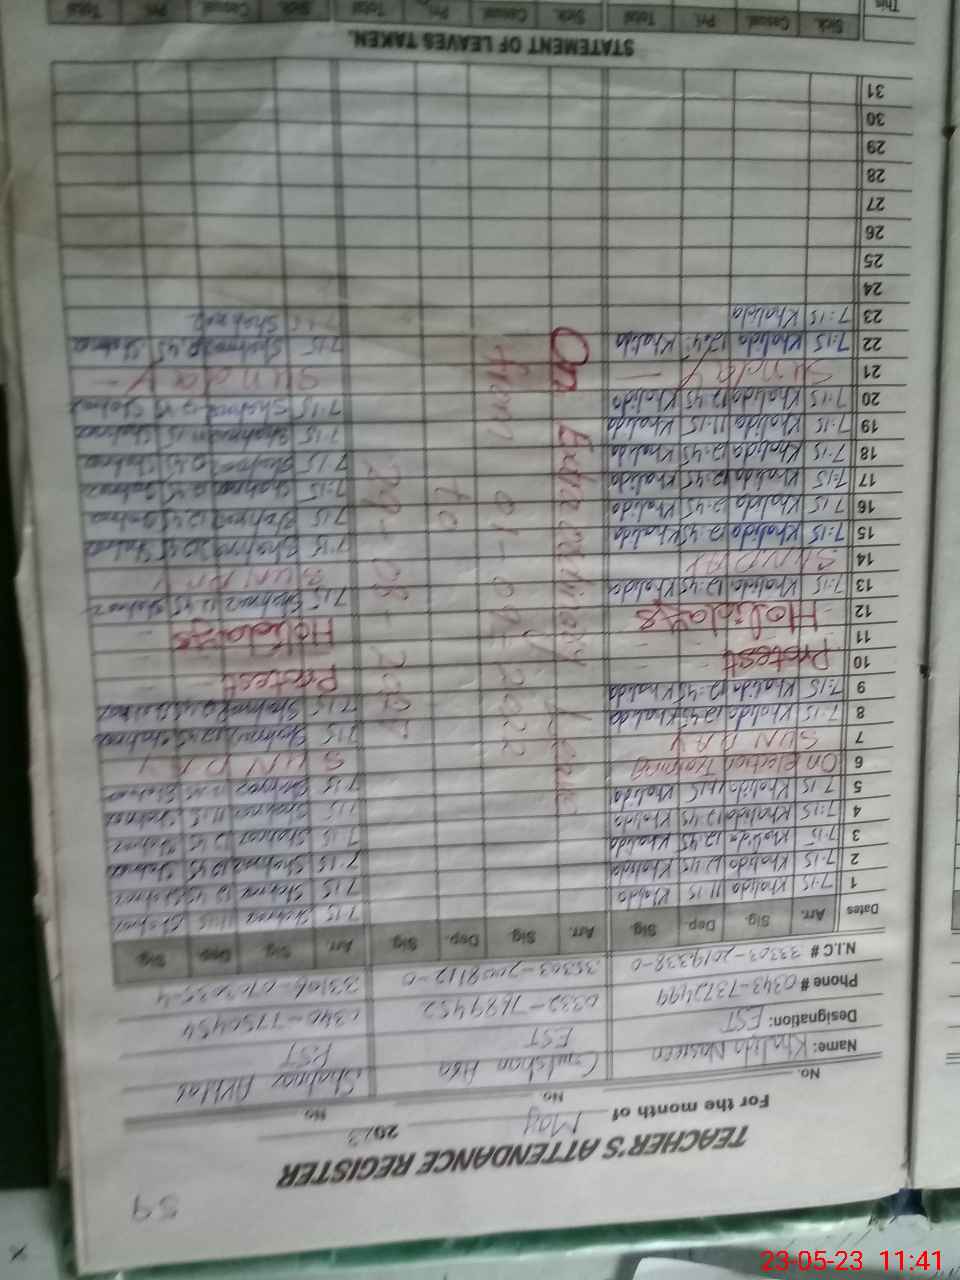 59
TEACHER'S ATTENDANCE REGISTER
For the month of May 2023
No. No. No.
Name: Khalida Nasreen Gulshan Ara Shahnaz Akhtar
Designation: EST EST PST
Phone # 0343-7372499 0332-7689452 0340-7750454
N.I.C # 33303-2019338-0
Dates Arr. Sig. Dep. Sig. Arr. Sig. Dep. Sig. Arr. Sig. Dep. Sig.
1 7:15 Khalida 11:15 Khalida 7:15 Shahnaz 11:15 Shahnaz
2 7:15 Khalida 12:45 Khalida 7:15 Shahnaz 12:45 Shahnaz
3 7:15 Khalida 12:45 Khalida 7:15 Shahnaz 12:45 Shahnaz
4 7:15 Khalida 12:45 Khalida 7:15 Shahnaz 12:45 Shahnaz
5 7:15 Khalida 11:15 Khalida 7:15 Shahnaz 11:15 Shahnaz
6 On election Training 7:15 Shahnaz Shahnaz
7 SUNDAY SUNDAY
8 7:15 Khalida 12:45 Khalida 7:15 Shahnaz 12:45 Shahnaz
9 7:15 Khalida 12:45 Khalida 7:15 Shahnaz 12:45 Shahnaz
10 Protest Protest
11
12 Holidays Holidays
13 7:15 Khalida 12:45 Khalida 7:15 Shahnaz 12:45 Shahnaz
14 SUNDAY SUNDAY
15 7:15 Khalida 12:45 Khalida 7:15 Shahnaz 12:45 Shahnaz
16 7:15 Khalida 12:45 Khalida 7:15 Shahnaz 12:45 Shahnaz
17 7:15 Khalida 12:45 Khalida 7:15 Shahnaz 12:45 Shahnaz
18 7:15 Khalida 12:45 Khalida 7:15 Shahnaz 12:45 Shahnaz
19 7:15 Khalida 11:15 Khalida 7:15 Shahnaz 11:15 Shahnaz
20 7:15 Khalida 12:45 Khalida 7:15 Shahnaz 12:45 Shahnaz
21 Sunday Sunday
22 7:15 Khalida 12:45 Khalida 7:15 Shahnaz 12:45 Shahnaz
23 7:15 Khalida 7:15 Shahnaz
24
25
26
27
28
29
30
31
On Extra ordinary Leave
from 01-09-2022
to
STATEMENT OF LEAVES TAKEN.
Sick. Casual. Pri. Total Sick. Casual. Pri. Total Sick. Casual. Pri. Total
This
23-05-23 11:41